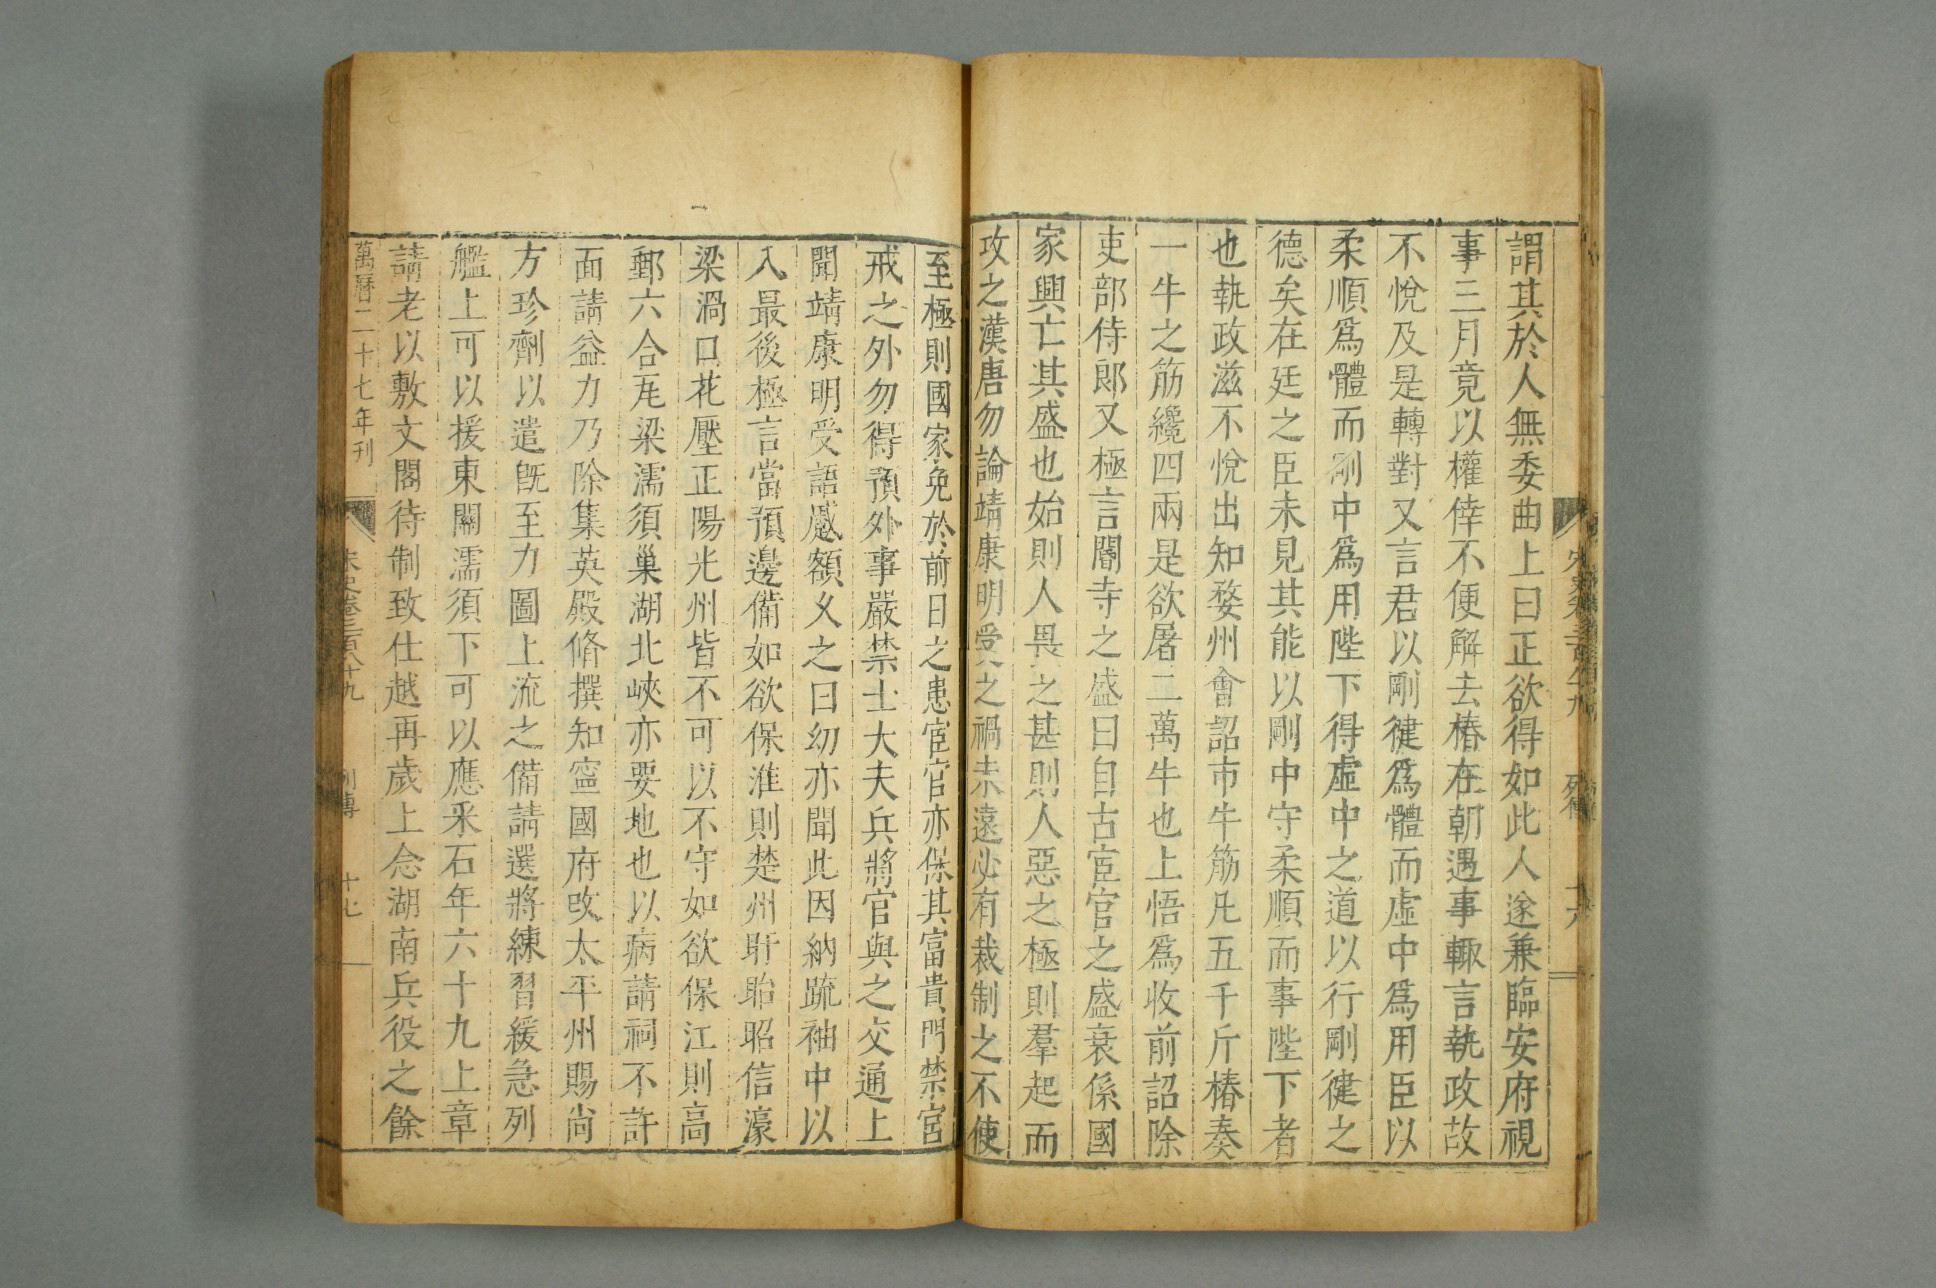 宋史卷三百八十九
列傳
十六
謂其於人無委曲上曰正欲得如此人遂兼臨安府視
事三月竟以權倖不便解去椿在朝遇事輙言執政故
不悅及是轉對又言君以剛健爲體而虛中爲用臣以
柔順爲體而剛中爲用陛下得虛中之道以行剛健之
德矣在廷之臣未見其能以剛中守柔順而事陛下者
也執政滋不悅出知婺州會詔市牛筋凡五千斤椿奏
一牛之筋纔四兩是欲屠二萬牛也上悟爲收前詔除
吏部侍郎又極言閹寺之盛曰自古宦官之盛衰係國
家興亡其盛也始則人畏之甚則人惡之極則羣起而
攻之漢唐勿論靖康明受之禍未遠必有裁制之不使
至極則國家免於前日之患宦官亦保其富貴門禁宮
戒之外勿得預外事嚴禁士大夫兵將官與之交通上
聞靖康明受語慼額久之曰幼亦聞此因納疏袖中以
入最後極言當預邊備如欲保淮則楚州盱眙昭信濠
梁渦口花壓正陽光州皆不可以不守如欲保江則高
郵六合瓦梁濡須巢湖北峽亦要地也以病請祠不許
面請益力乃除集英殿脩撰知寧國府改太平州賜尚
方珍劑以遣旣至力圖上流之備請選將練習緩急列
艦上可以援東關濡須下可以應釆石年六十九上章
請老以敷文閣待制致仕越再歲上念湖南兵役之餘
萬曆二十七年刊
宋史卷三百八十九
列傳
十七